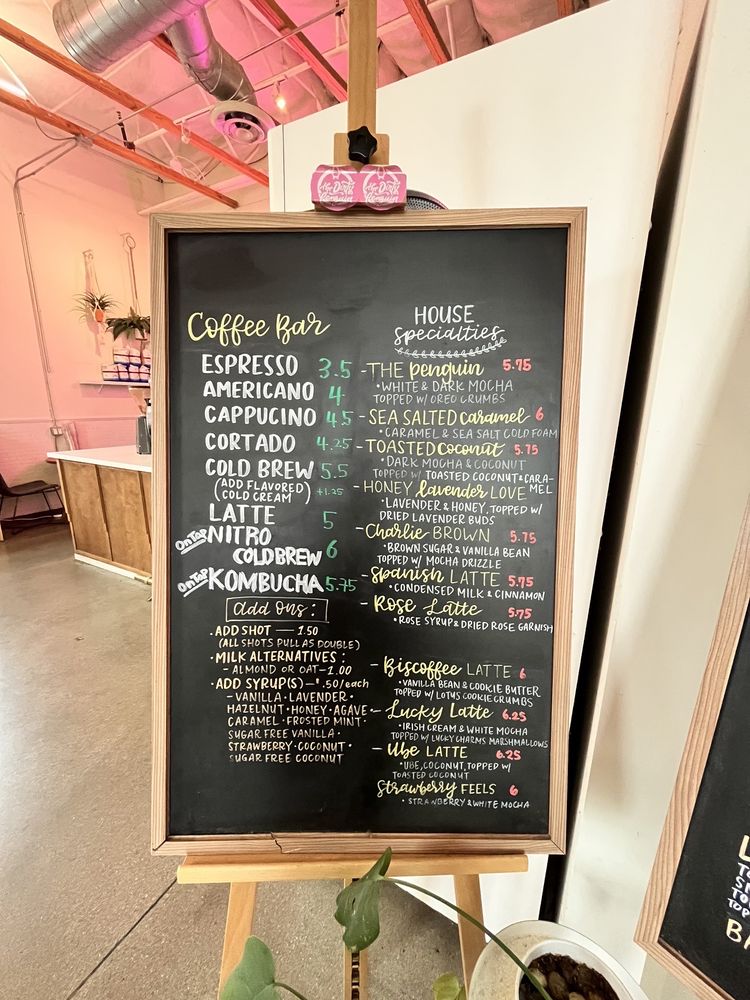 The Dirty Penguin The Dirty Penguin
Coffee Bar
ESPRESSO 3.5
AMERICANO 4
CAPPUCINO 4.5
CORTADO 4.25
COLD BREW 5.5
(ADD FLAVORED
COLD CREAM) +1.25
LATTE 5
On Tap NITRO
COLD BREW 6
On Tap KOMBUCHA 5.75
add ons:
·ADD SHOT — 1.50
(ALL SHOTS PULL AS DOUBLE)
·MILK ALTERNATIVES:
- ALMOND OR OAT - 1.00
·ADD SYRUP(S) - .50/each
- VANILLA · LAVENDER ·
HAZELNUT · HONEY · AGAVE
CARAMEL · FROSTED MINT ·
SUGAR FREE VANILLA ·
STRAWBERRY · COCONUT ·
SUGAR FREE COCONUT
HOUSE
specialties
- THE penguin 5.75
·WHITE & DARK MOCHA
TOPPED W/ OREO CRUMBS
- SEA SALTED caramel 6
·CARAMEL & SEA SALT COLD FOAM
- TOASTED coconut 5.75
·DARK MOCHA & COCONUT
TOPPED W/ TOASTED COCONUT & CARA-
MEL
- HONEY lavender LOVE
·LAVENDER & HONEY, TOPPED W/
DRIED LAVENDER BUDS
- Charlie BROWN 5.75
·BROWN SUGAR & VANILLA BEAN
TOPPED W/ MOCHA DRIZZLE
- Spanish LATTE 5.75
·CONDENSED MILK & CINNAMON
- Rose Latte 5.75
·ROSE SYRUP & DRIED ROSE GARNISH
- Biscoffee LATTE 6
·VANILLA BEAN & COOKIE BUTTER
TOPPED W/ LOTUS COOKIE CRUMBS
- Lucky Latte 6.25
·IRISH CREAM & WHITE MOCHA
TOPPED W/ LUCKY CHARMS MARSHMALLOWS
- Ube LATTE 6.25
·UBE, COCONUT, TOPPED W/
TOASTED COCONUT
Strawberry FEELS 6
·STRAWBERRY & WHITE MOCHA